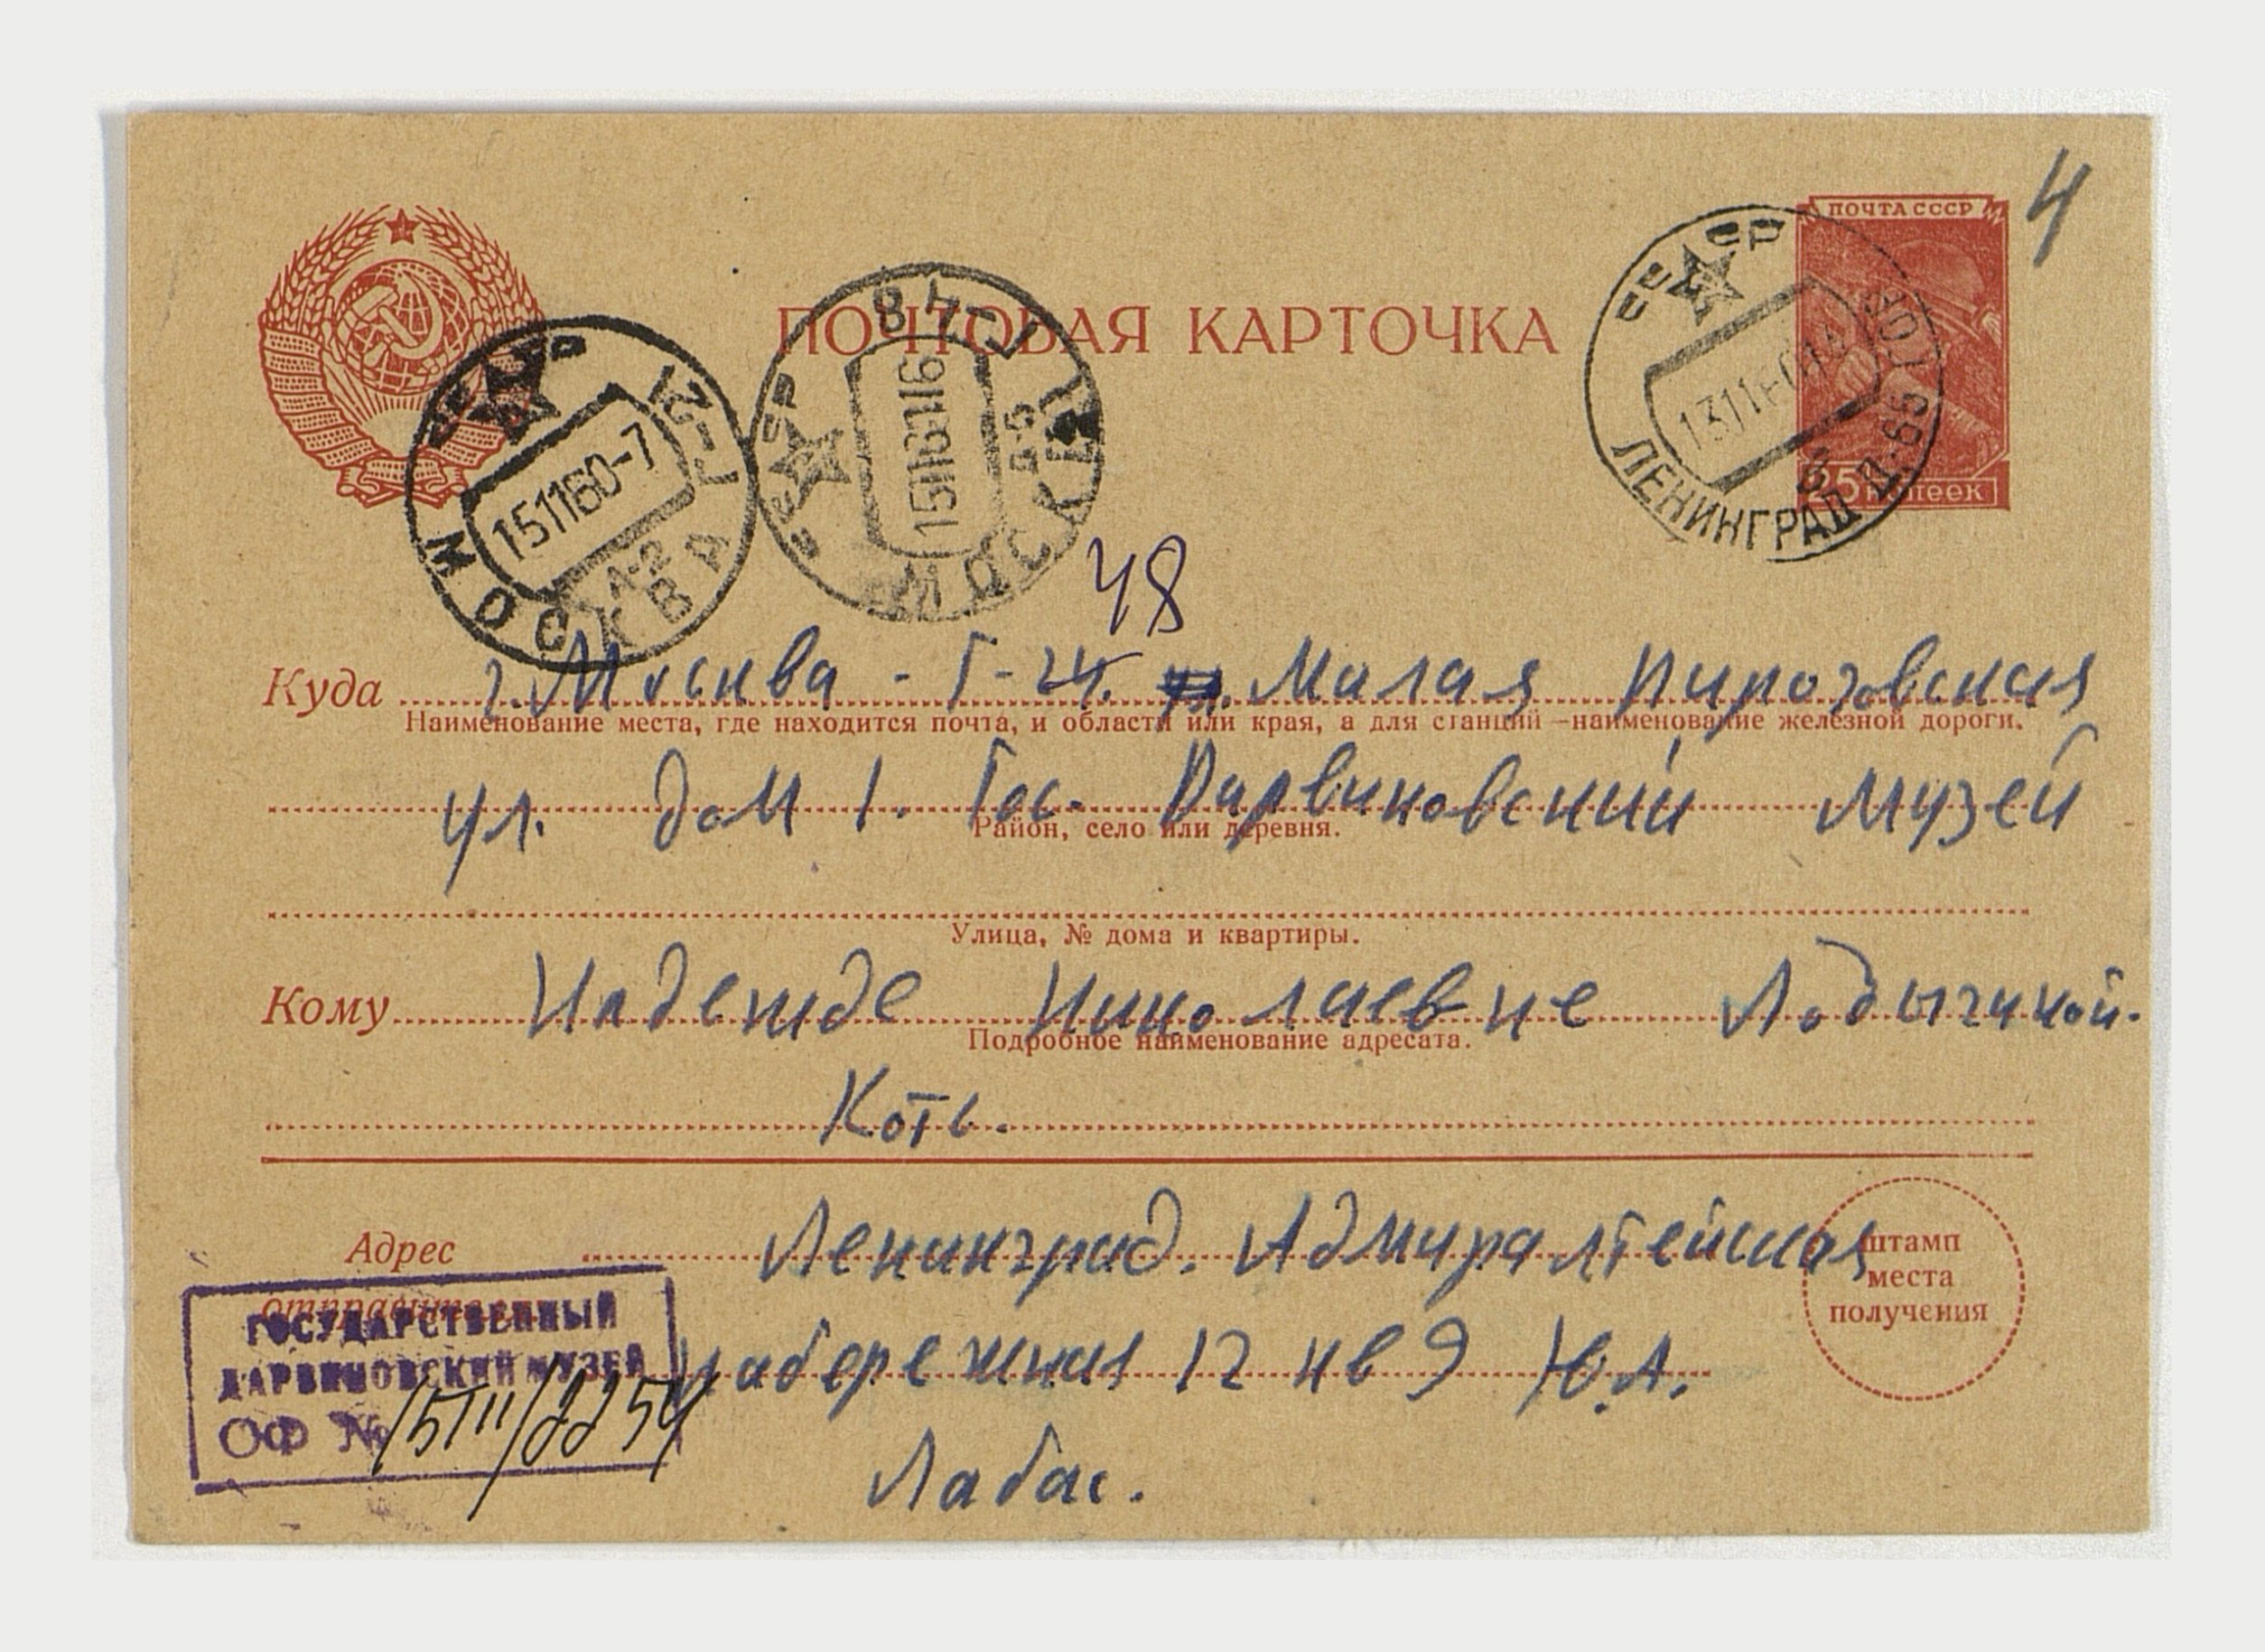 4
ПОЧТА СССР
25 копеек
ПОЧТОВАЯ КАРТОЧКА
СССР
ЛЕНИНГРАД Д-65
131160
СССР
МОСКВА Г-48
151160 16
СССР
МОСКВА
151160-7
48
Куда г. Москва - Г-24. Малая Пироговская
Наименование места, где находится почта, и области или края, а для станций — наименование железной дороги.
ул. дом 1. Гос. Дарвиновский музей
Район, село или деревня.
Улица, № дома и квартиры.
Кому Надежде Николаевне Ладыгиной.
Подробное наименование адресата.
Котс.
Адрес отправителя
Ленинград. Адмиралтейская
набережная 12 кв 9 Ю.А.
Лабас.
штамп
места
получения
ГОСУДАРСТВЕННЫЙ
ДАРВИНОВСКИЙ МУЗЕЙ
ОФ №